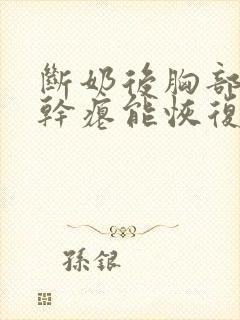 斷奶後胸部
幹癟能恢復
孫銀